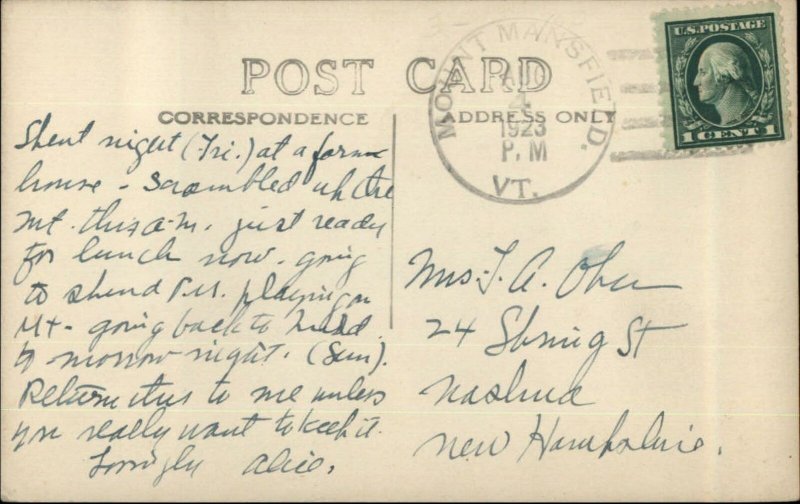 POST CARD
CORRESPONDENCE
ADDRESS ONLY
MOUNT MANSFIELD.
AUG
4
1923
P. M
VT.
U.S. POSTAGE
1 CENT 1
Spent night (Fri.) at a farm
house - Scrambled up the
mt. this a.m. just ready
for lunch now. going
to spend P.M. playing on
Mt - going back to
to morrow night. (Sun).
Return this to me unless
you really want to keep it.
Lovingly Alice.
Mrs. A. Ober
24 Spring St
Nashua
New Hampshire.